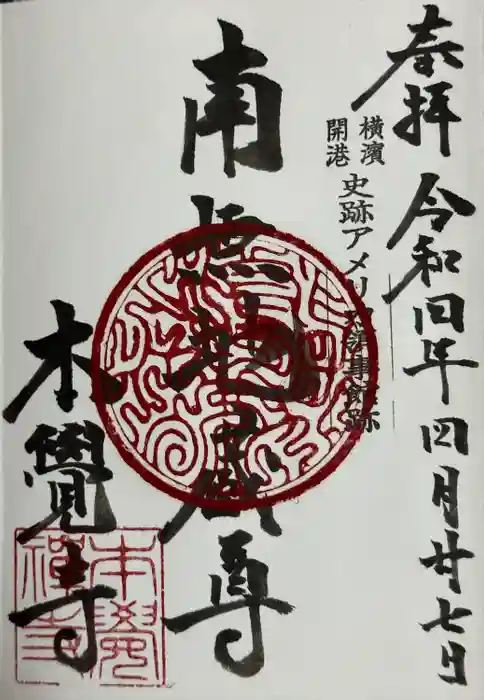 奉拝 令和四年四月廿七日
横濱
開港
史跡アメリカ領事館跡
南無地蔵尊
本覺寺
本覺
禅寺